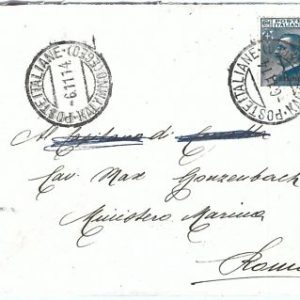 POSTE ITALIANE
-6.11.14.
POSTE
ITALIANE
25
POSTE ITALIANE
Al Capitano di
Cav. Max Gonzenbach
Ministero Marina
Roma